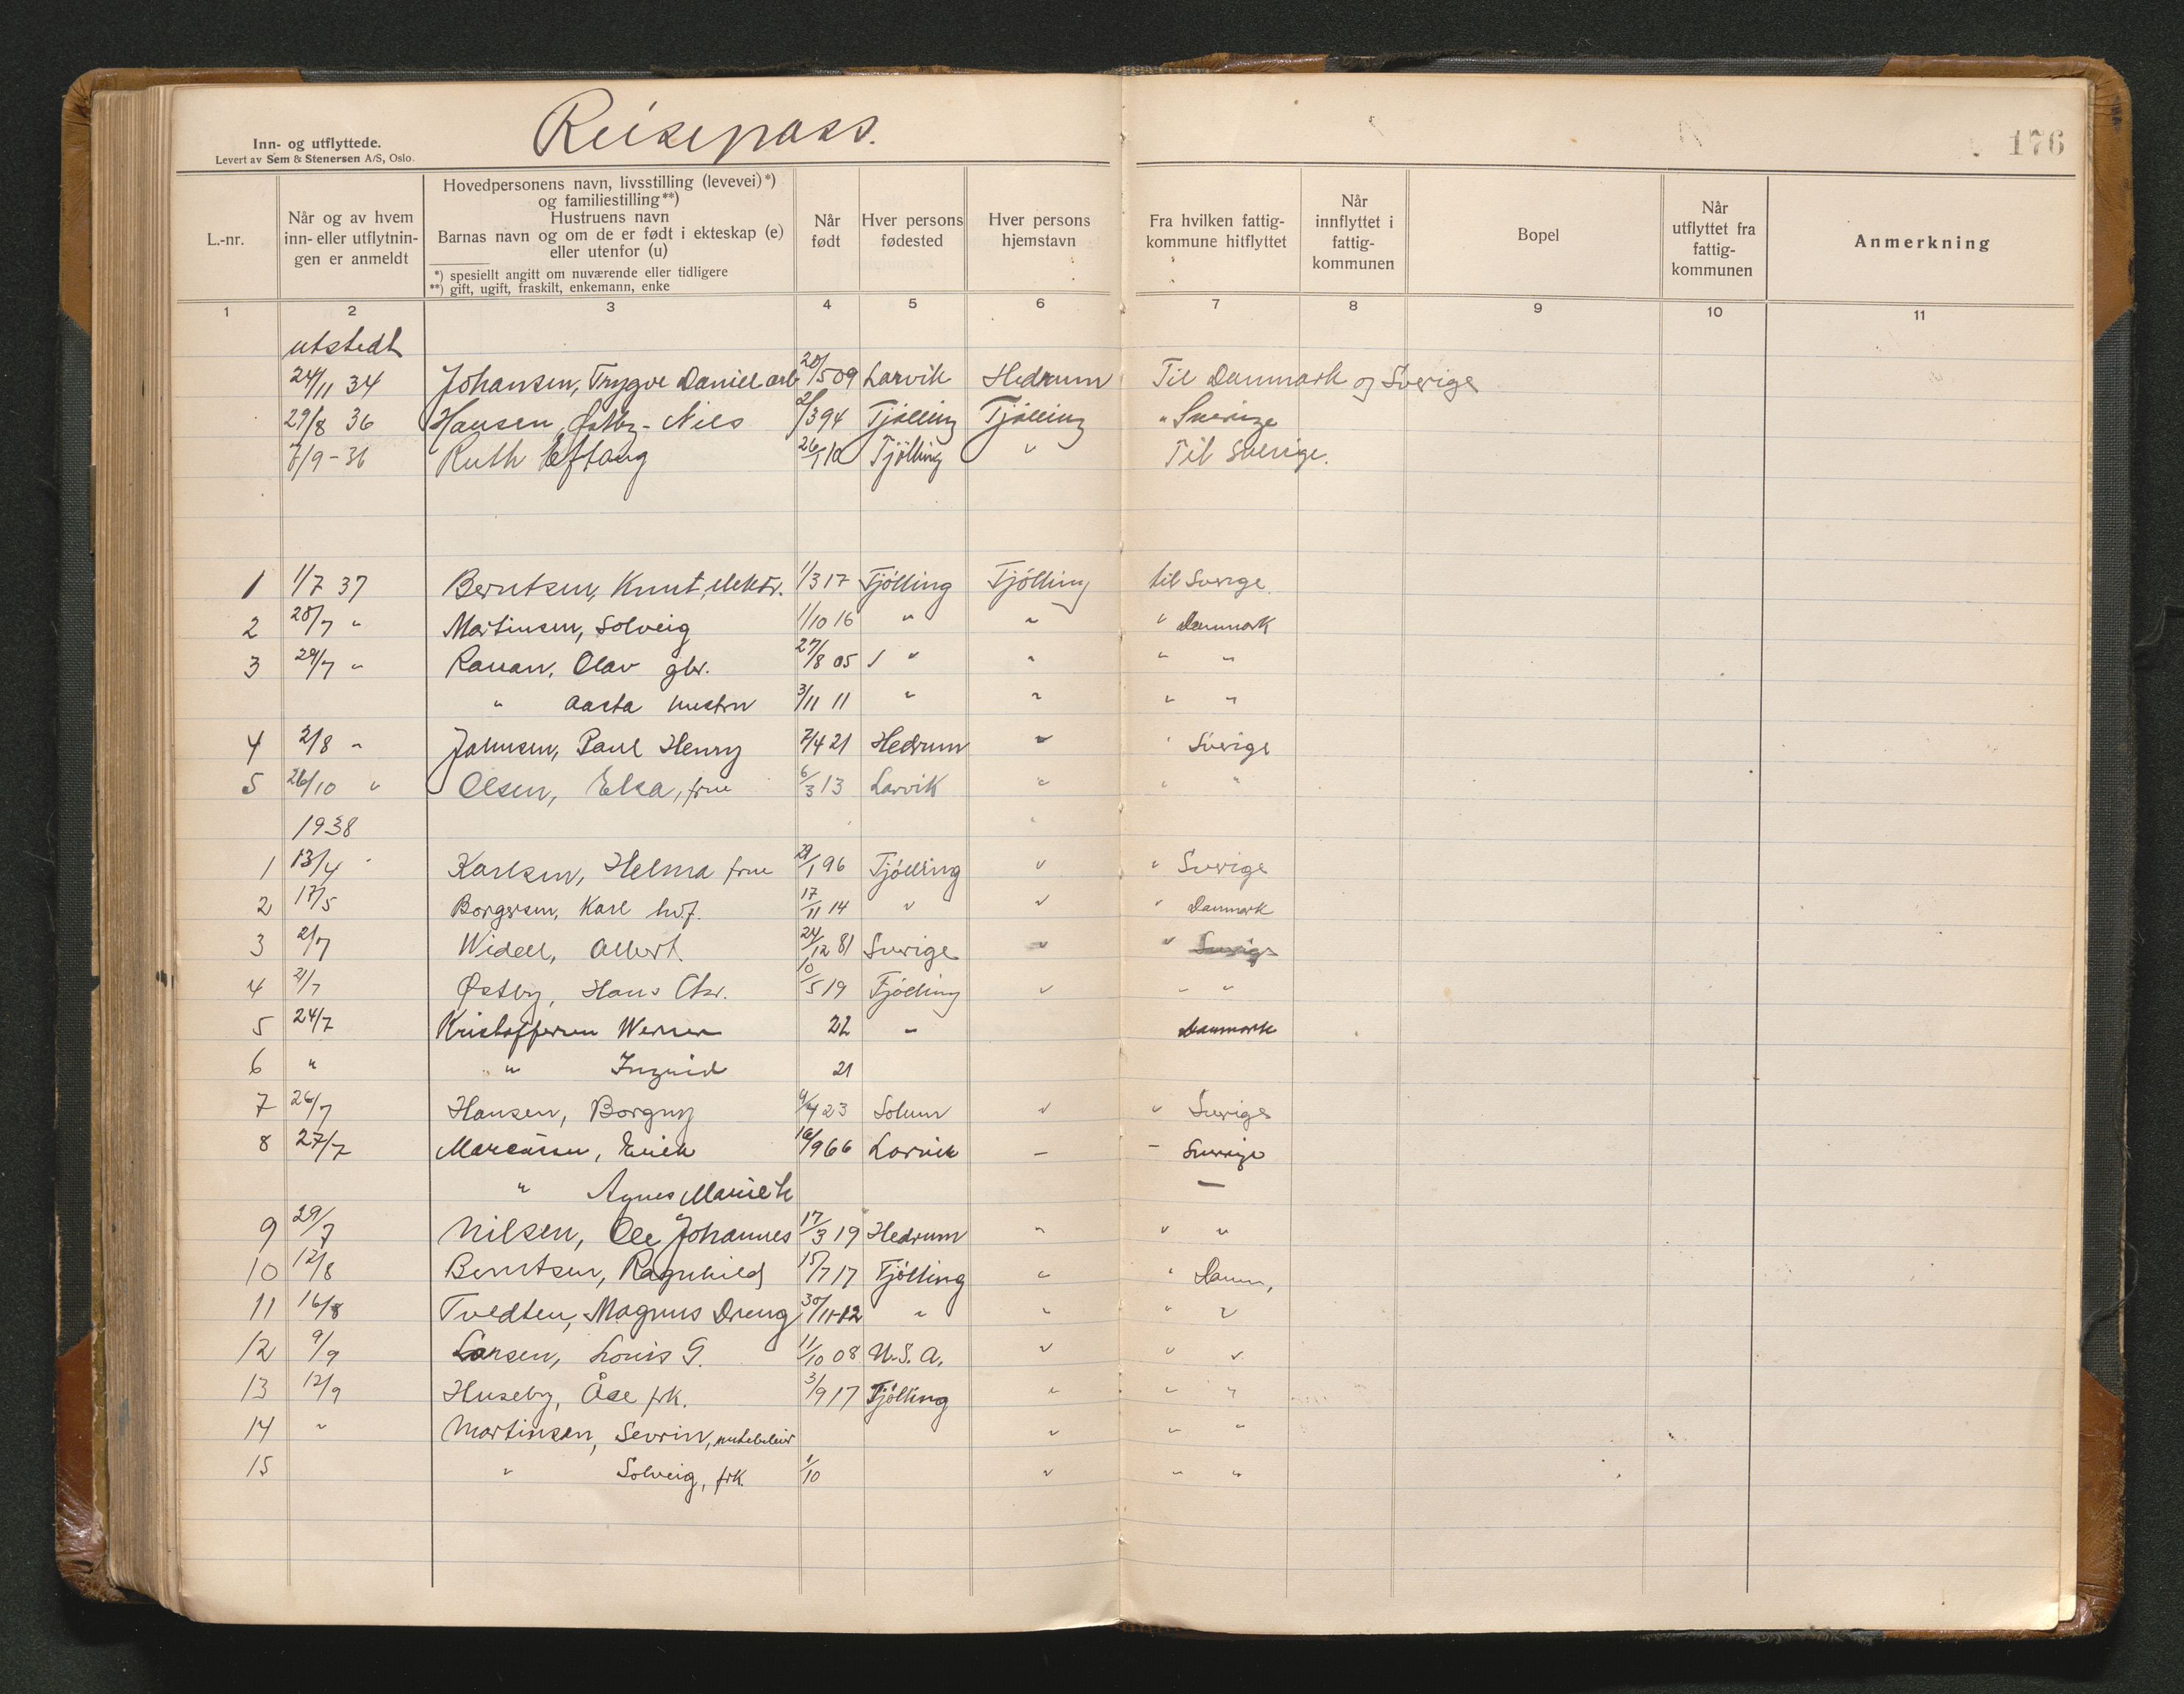 Reisepass.
176
Inn- og utflyttede.
Levert av Sem & Stenersen A/S, Oslo.
L.-nr.
Når og av hvem inn- eller utflytnin-gen er anmeldt
Hovedpersonens navn, livsstilling (levevei)*)
og familiestilling**)
Hustruens navn
Barnas navn og om de er født i ekteskap (e)
eller utenfor (u)
*) spesiellt angitt om nuværende eller tidligere
**) gift, ugift, fraskilt, enkemann, enke
Når født
Hver persons fødested
Hver persons hjemstavn
Fra hvilken fattig-kommune hitflyttet
Når innflyttet i fattig-kommunen
Bopel
Når utflyttet fra fattig-kommunen
Anmerkning
1 2 3 4 5 6 7 8 9 10 11
utstedt
24/11 34 Johansen, Trygve Daniel arb 20/5 09 Larvik Hedrum Til Danmark og Sverige
29/8 36 Hansen, Østby - Nils 2/3 94 Tjølling Tjølling " Sverige
7/9-36 Ruth Eftang 26/1 10 Tjölling " Til Sverige.
1 1/7 37 Berntsen, Knut, elektr. 1/3 17 Tjölling Tjölling til Sverige.
2 20/7 " Martinsen, Solveig 1/10 16 " " " Danmark
3 29/7 " Rauan, Olav gbr. 27/8 05 " " " "
" Aasta hustru 3/11 11 " " " "
4 2/8 " Johnsen, Paul Henry 7/4 21 Hedrum " " Sverige
5 26/10 " Olsen, Elsa, frue 6/3 13 Larvik " " "
1938
1 13/4 " Karlsen, Helma frue 29/1 96 Tjölling " " Sverige
2 17/5 Borgersen, Karl hvf. 17/11 14 " " " Danmark
3 2/7 Widell, Albert 24/12 81 Sverige " " Sverige
4 21/7 Østby, Hans Chr. 10/5 19 Tjölling " " "
5 24/7 Kristoffersen Werner 22 " Danmark
6 " " Ingrid 21
7 26/7 Hansen, Borgny 9/4 23 Solum " " Sverige
8 27/7 Marcussen, Erich 16/9 66 Larvik - - Sverige
" Agnes Marie -
9 29/7 Nilsen, Ole Johannes 17/3 19 Hedrum " " "
10 12/8 Berntsen, Ragnhild 15/7 17 Tjölling " " Danm,
11 16/8 Tvedten, Magnus Dreng 30/11-12 " " " "
12 9/9 Larsen, Louis G. 11/10 08 U.S.A. " " "
13 12/9 Huseby, Åse frk. 3/9 17 Tjölling " " "
14 " Martinsen, Sevrin, " " "
15 " Solveig, frk. 1/10 " " "